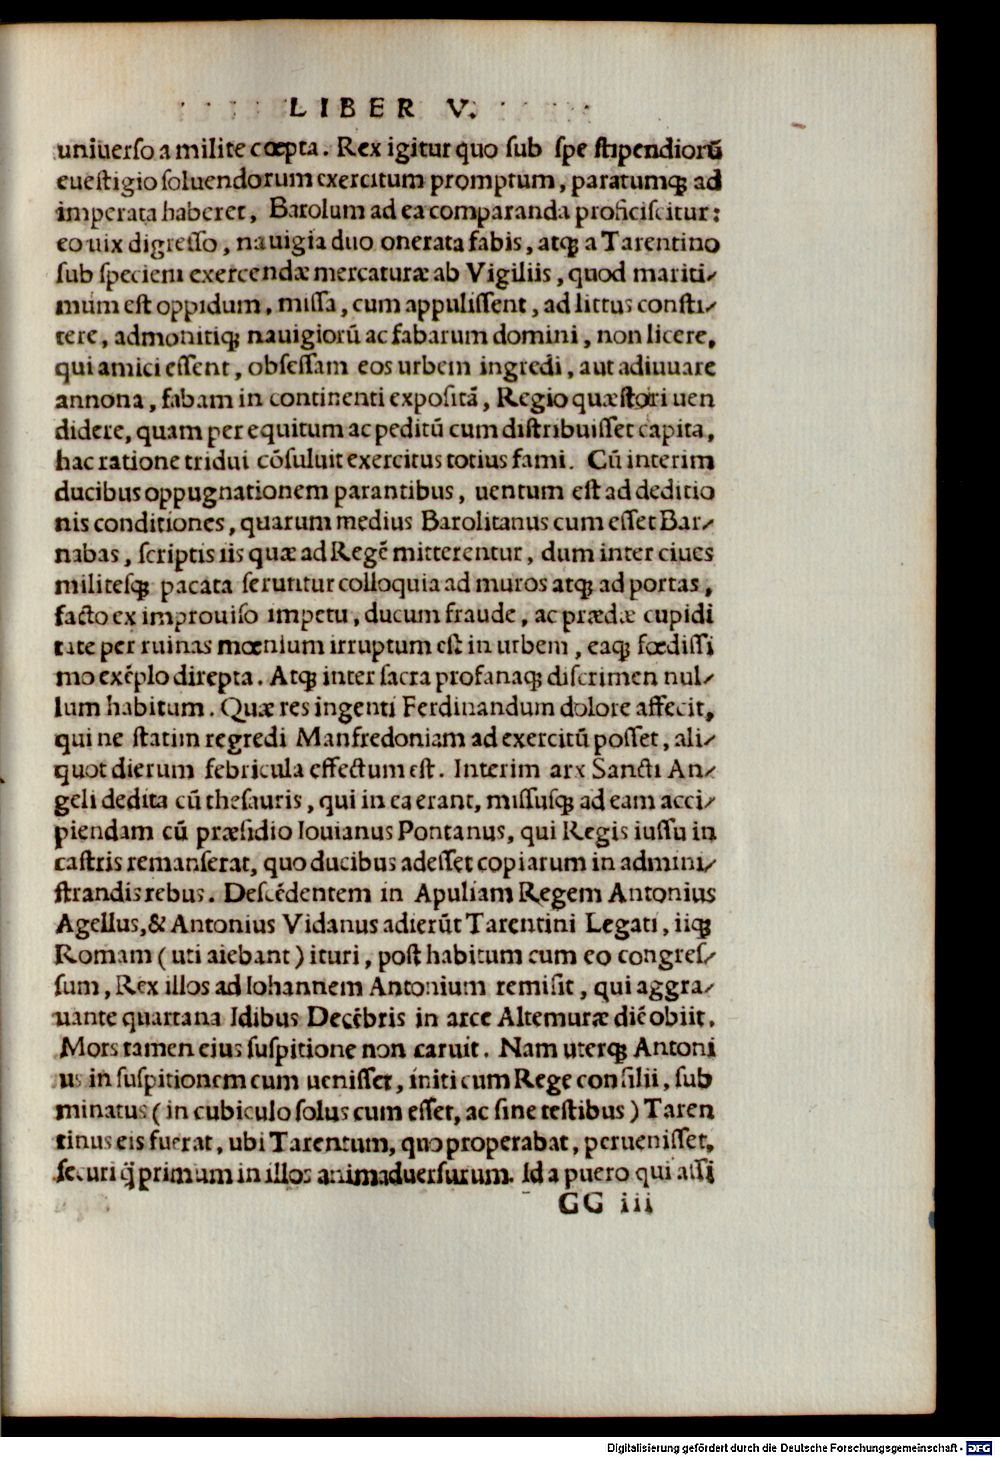 LIBER V.
uniuerso a milite cœpta. Rex igitur quo sub spe stipendiorū
euestigio soluendorum exercitum promptum, paratumq; ad
imperata haberet, Barolum ad ea comparanda proficiscitur:
eo uix digresso, nauigia duo onerata fabis, atq; a Tarentino
sub speciem exercendæ mercaturæ ab Vigiliis, quod mariti-
mum est oppidum, missa, cum appulissent, ad littus consti-
tere, admonitiq; nauigiorū ac fabarum domini, non licere,
qui amici essent, obsessam eos urbem ingredi, aut adiuuare
annona, fabam in continenti expositā, Regio quæstori uen
didere, quam per equitum ac peditū cum distribuisset capita,
hac ratione tridui cōsuluit exercitus totius fami. Cū interim
ducibus oppugnationem parantibus, uentum est ad deditio
nis conditiones, quarum medius Barolitanus cum esset Bar-
nabas, scriptis iis quæ ad Regē mitterentur, dum inter ciues
militesq; pacata seruntur colloquia ad muros atq; ad portas,
facto ex improuiso impetu, ducum fraude, ac prædæ cupidi
tate per ruinas mœnium irruptum est in urbem, eaq; fœdissi
mo exēplo direpta. Atq; inter sacra profanaq; discrimen nul-
lum habitum. Quæ res ingenti Ferdinandum dolore affecit,
qui ne statim regredi Manfredoniam ad exercitū posset, ali-
quot dierum febricula effectum est. Interim arx Sancti An-
geli dedita cū thesauris, qui in ea erant, missusq; ad eam acci-
piendam cū præsidio Iouianus Pontanus, qui Regis iussu in
castris remanserat, quo ducibus adesset copiarum in admini-
strandis rebus. Descēdentem in Apuliam Regem Antonius
Agellus, & Antonius Vidanus adierūt Tarentini Legati, iiq;
Romam (uti aiebant) ituri, post habitum cum eo congres-
sum, Rex illos ad Iohannem Antonium remisit, qui aggra-
uante quartana Idibus Decēbris in arce Altemuræ diē obiit.
Mors tamen eius suspitione non caruit. Nam uterq; Antoni
us in suspitionem cum uenisset, initi cum Rege consilii, sub
minatus (in cubiculo solus cum esset, ac sine testibus) Taren
tinus eis fuerat, ubi Tarentum, quo properabat, peruenisset,
securi q̄ primum in illos animaduersurum. Id a puero qui assi
GG iii
Digitalisierung gefördert durch die Deutsche Forschungsgemeinschaft - DFG